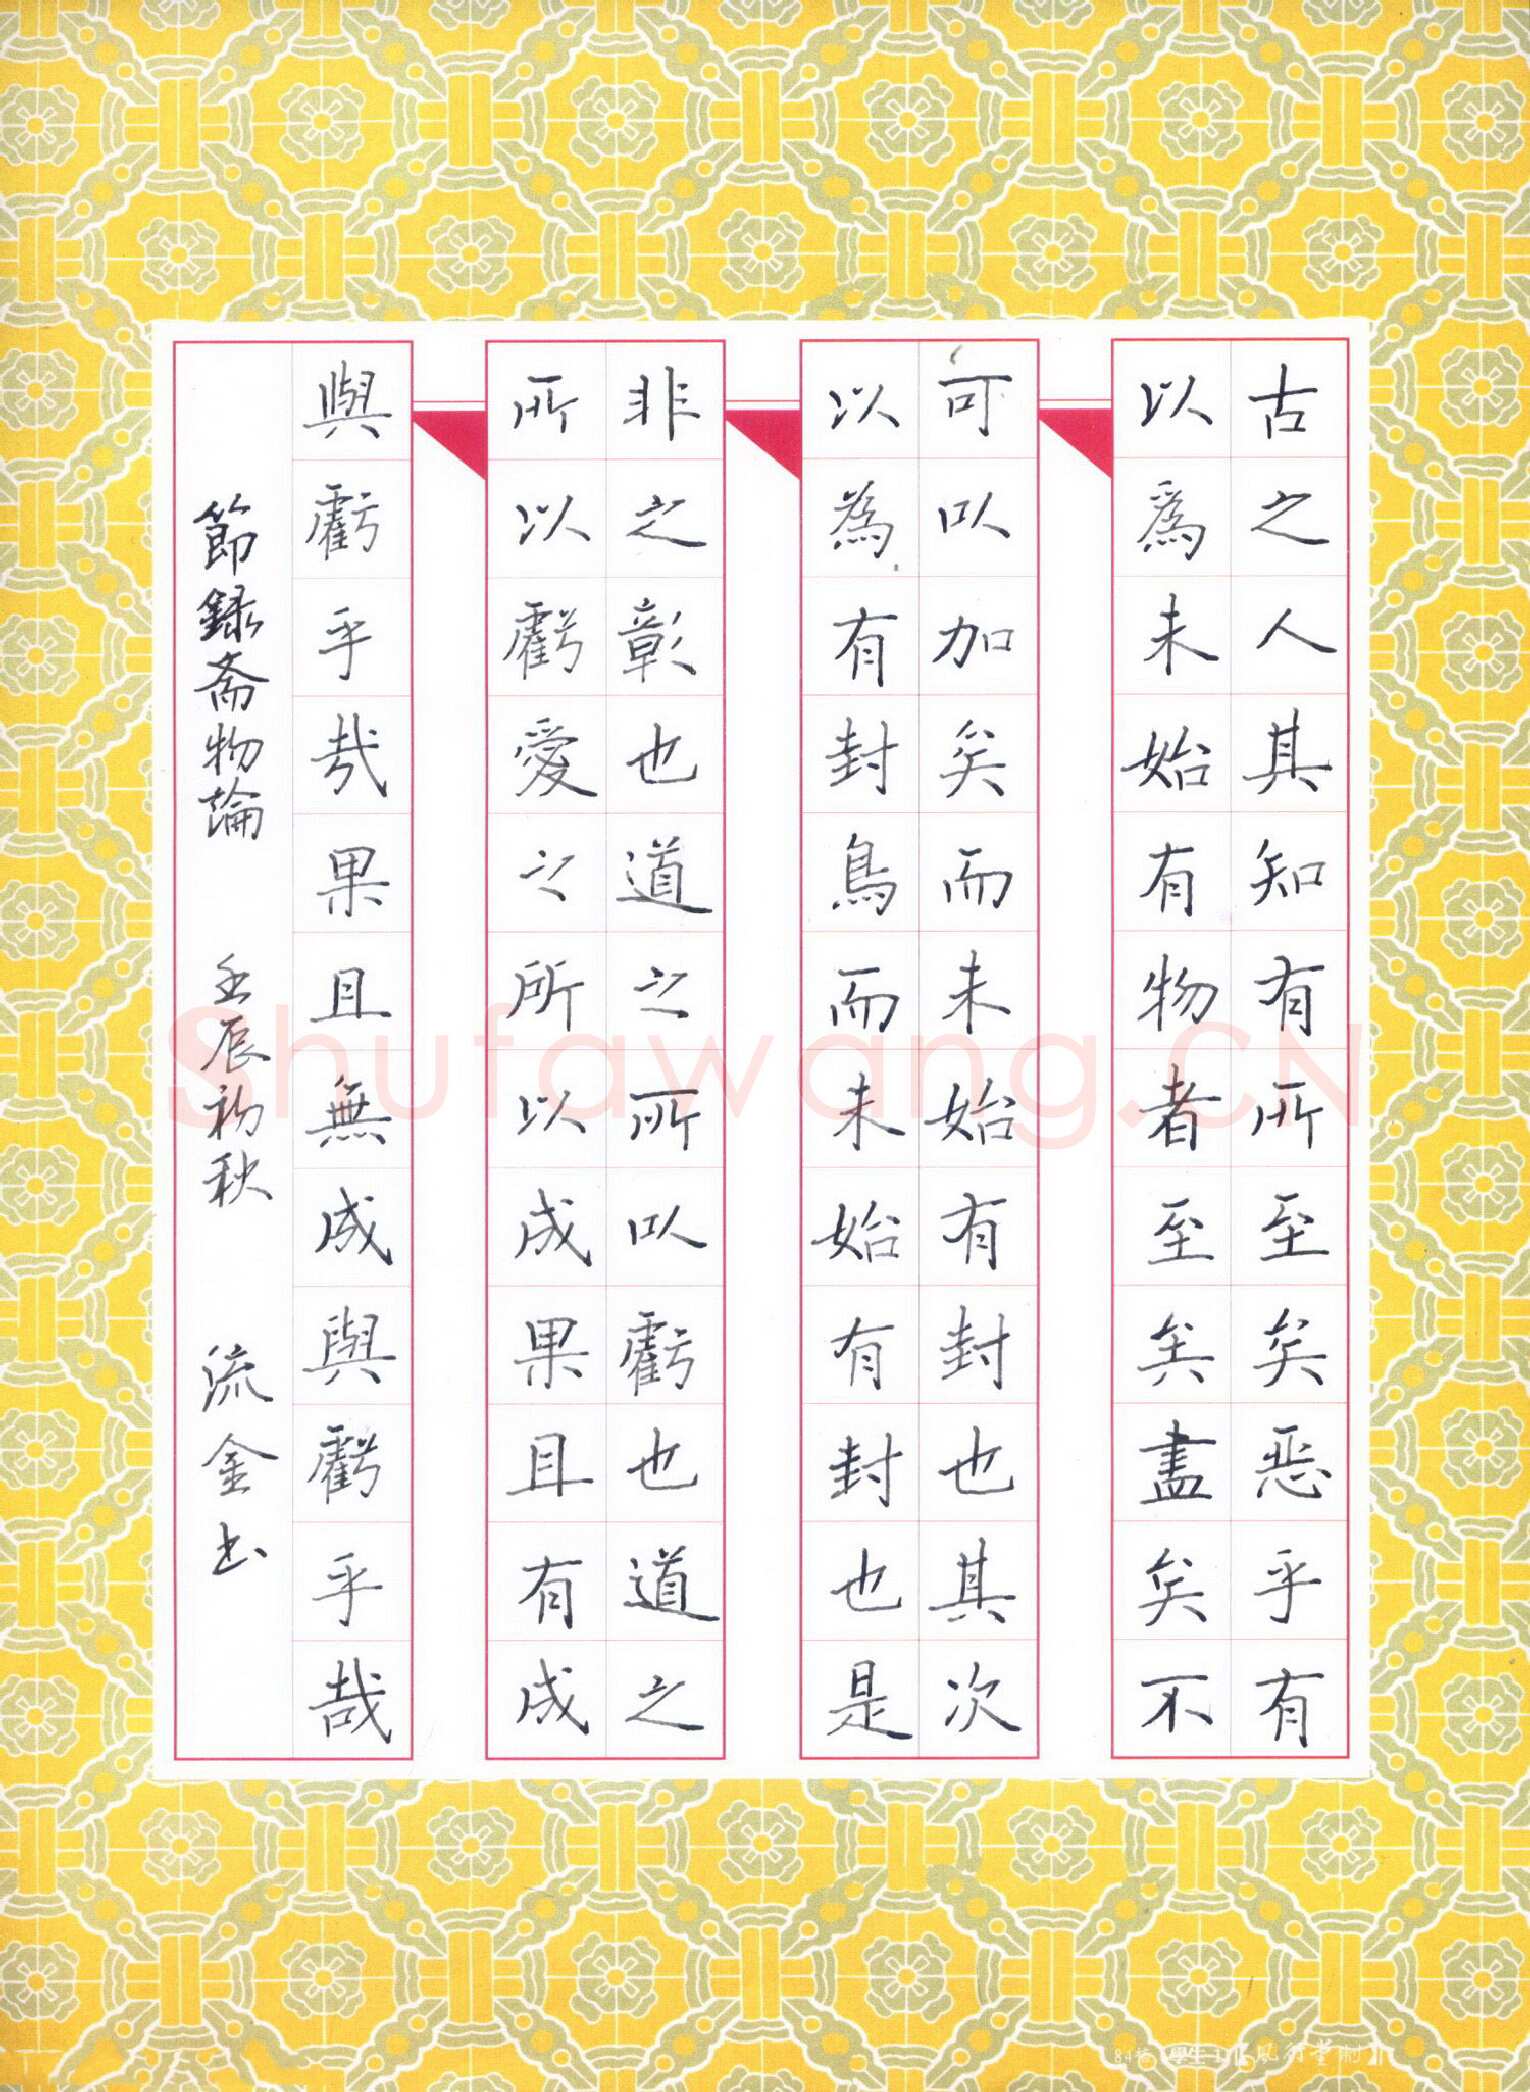 古之人其知有所至矣恶乎有
以爲未始有物者至矣盡矣不
可以加矣而未始有封也其次
以為有封鳥而未始有封也是
非之彰也道之所以虧也道之
所以虧愛之所以成果且有成
與虧乎哉果且無成與虧乎哉
節録斋物論 壬辰初秋 流金书
Shufawang.CN